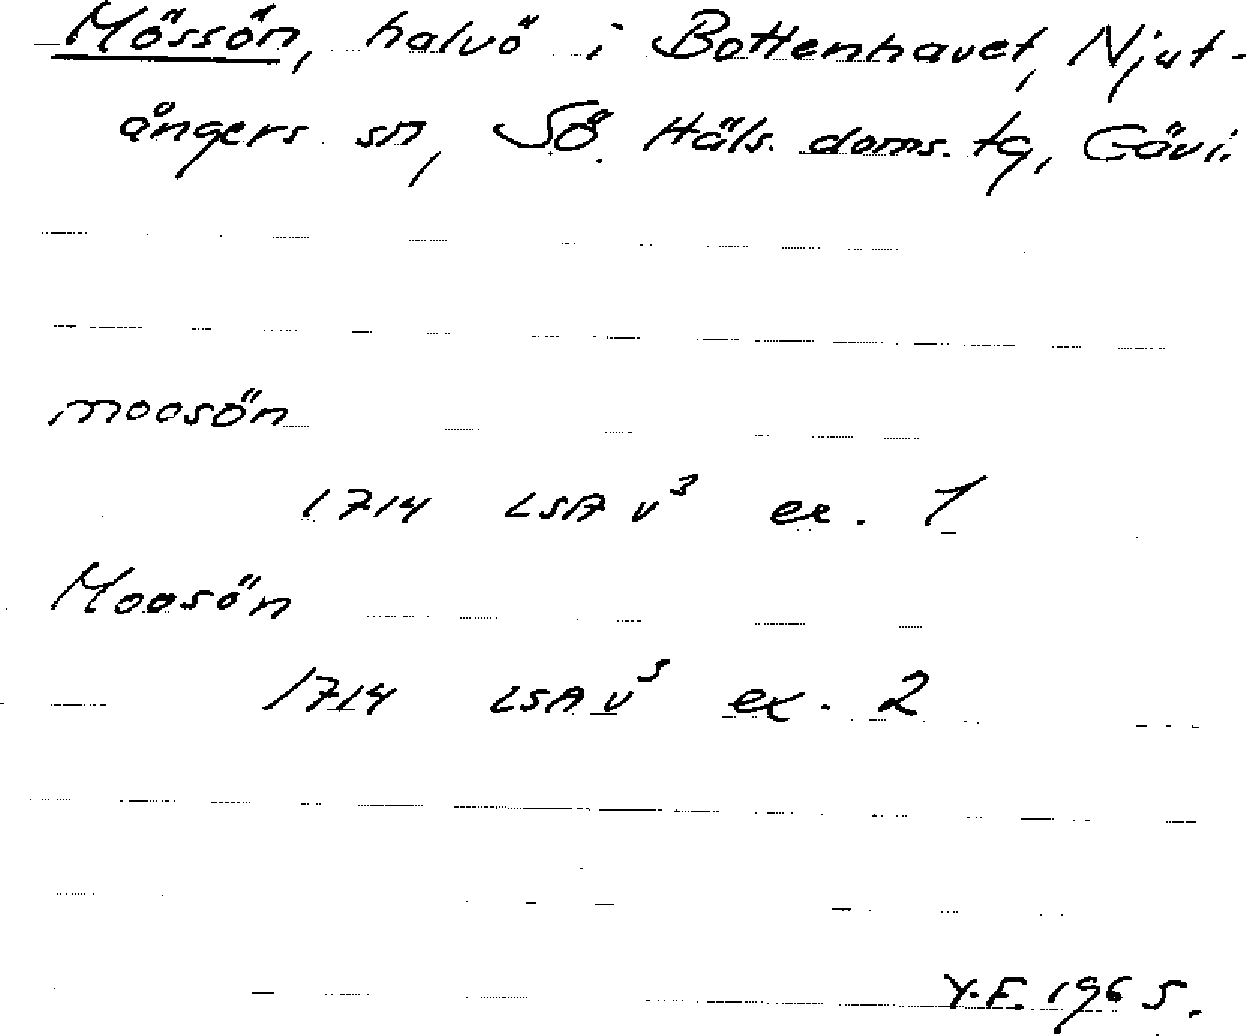 Mössön, halvö i Bottenhavet, Njut-
ångers sn, Sö. Häls. doms. tg, Gävl.
moosön
1714 LSA v³ ex. 1
Moosön
1714 LSA v⁵ ex. 2
Y.F. 1965.